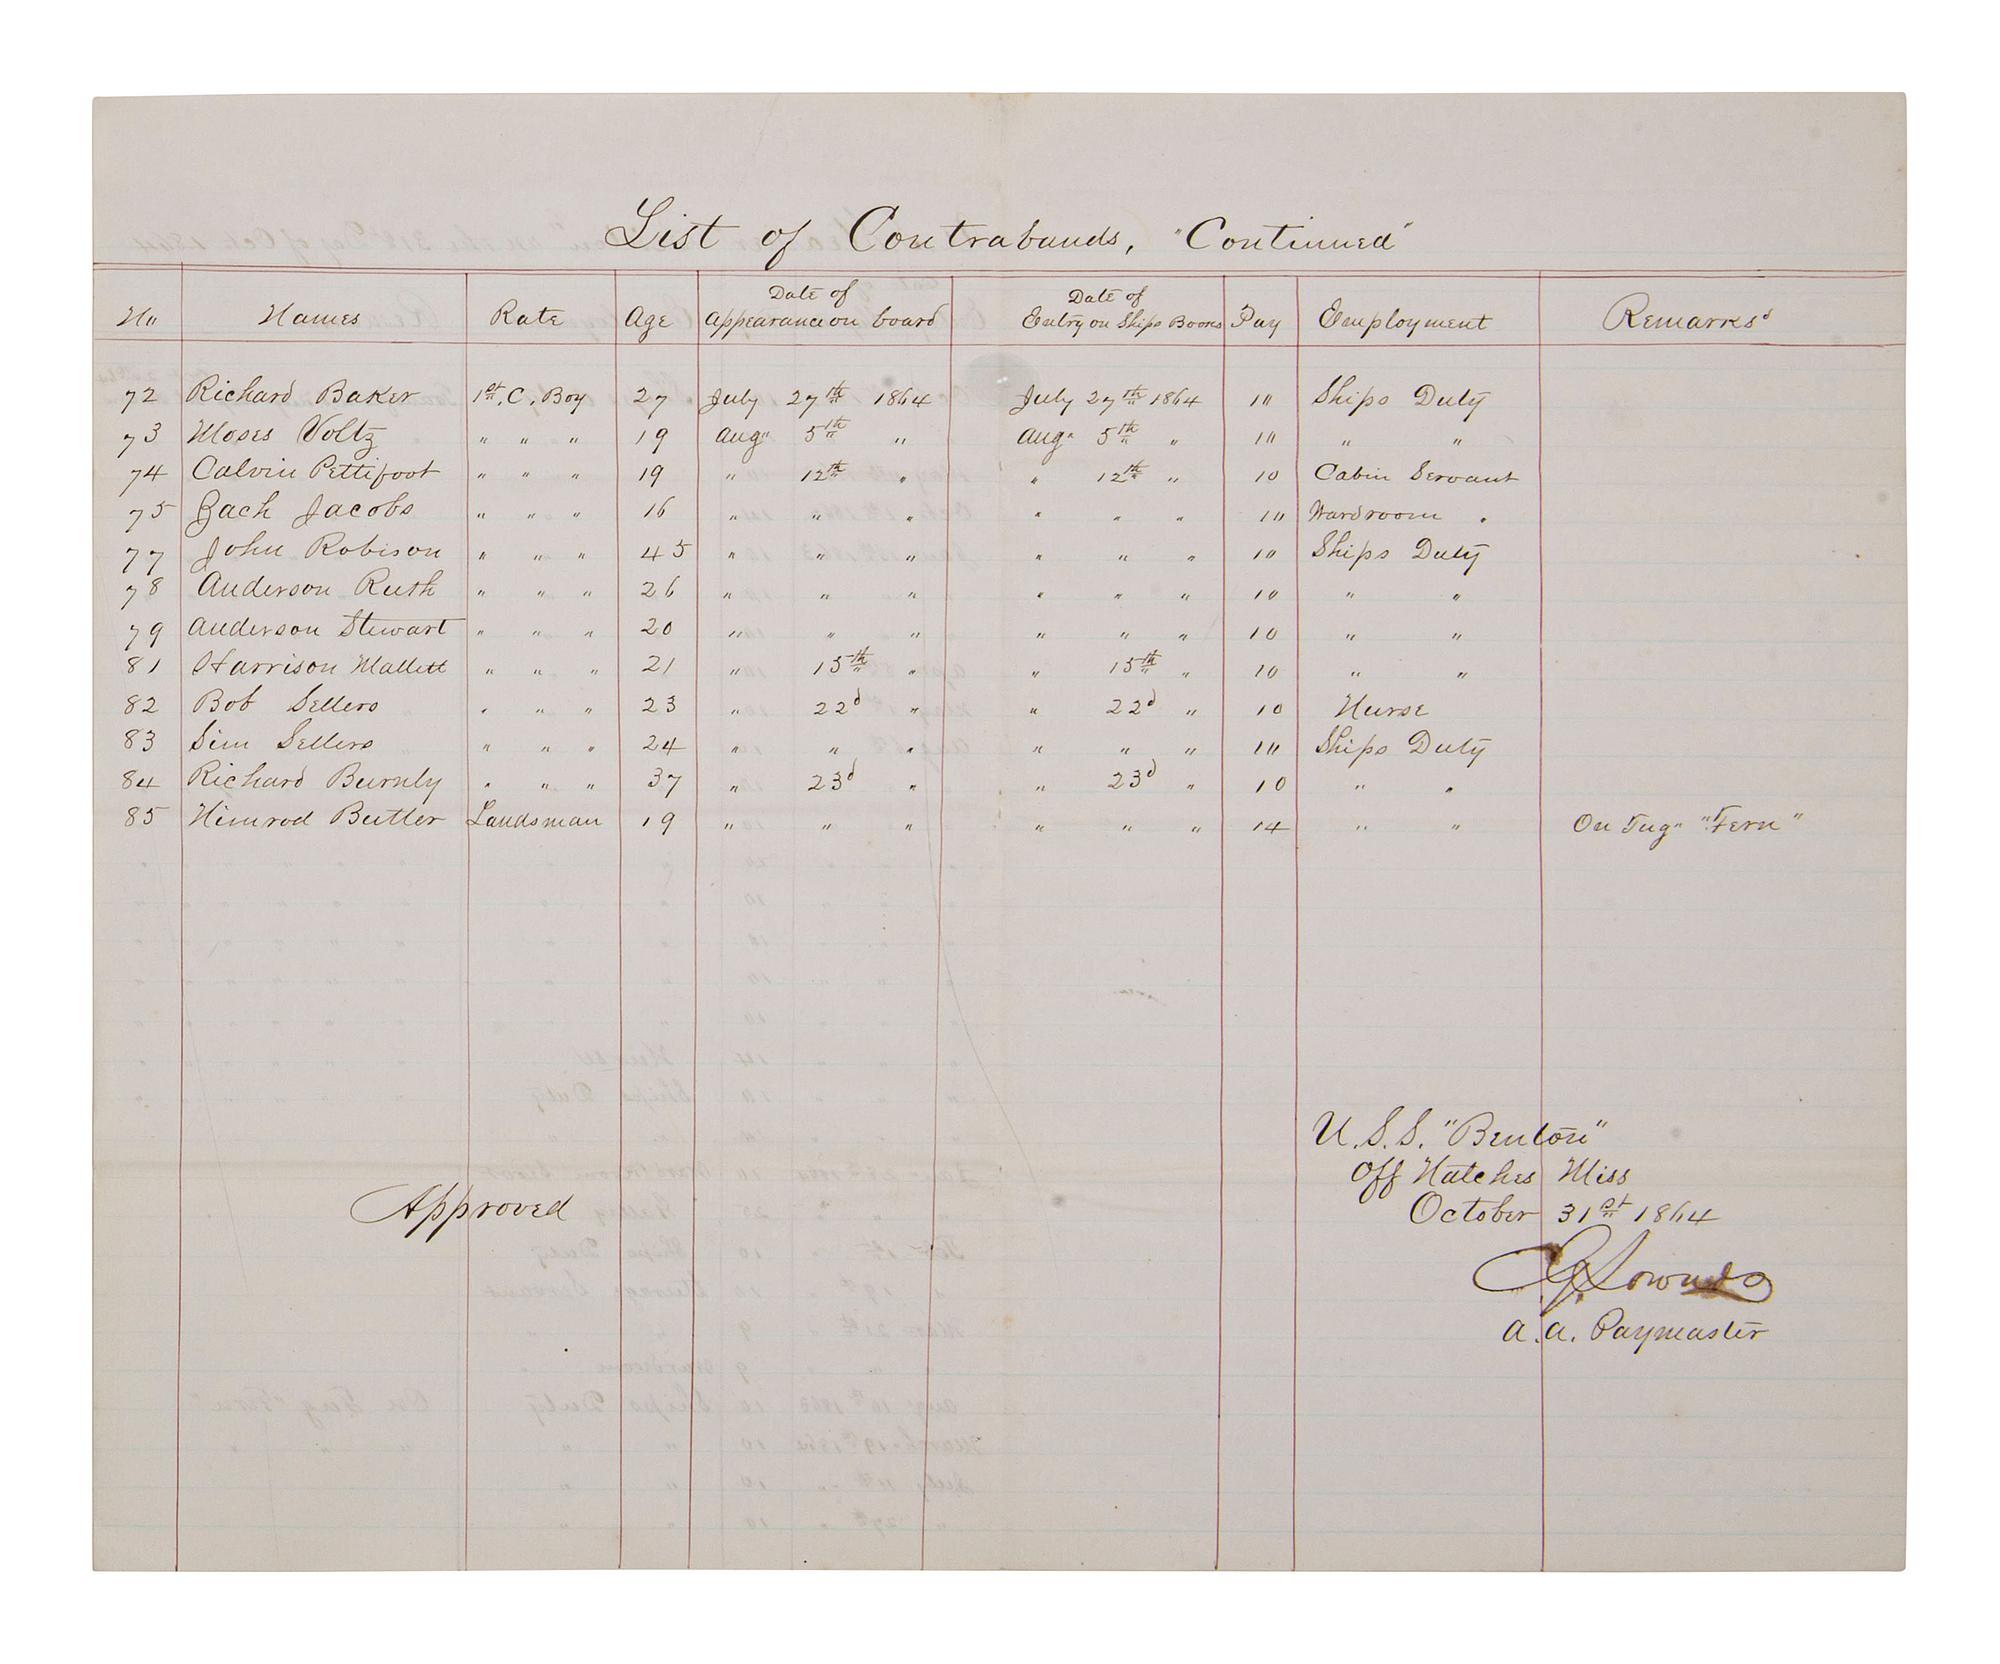 List of Contrabands, "Continued"
No Names Rate Age Date of Appearance on board Date of Entry on Ships Books Pay Employment Remarks
72 Richard Baker 1st, C, Boy 27 July 27th 1864 July 27th 1864 10 Ships Duty
73 Moses Voltz " " " 19 Aug" 5th " Aug" 5th " 10 " "
74 Calvin Pettifoot " " " 19 " 12th " " 12th " 10 Cabin Servant
75 Zach Jacobs " " " 16 " " " " " " 10 Wardroom "
77 John Robison " " " 45 " " " " " " 10 Ships Duty
78 Anderson Ruth " " " 26 " " " " " " 10 " "
79 Anderson Stewart " " " 20 " " " " " " 10 " "
81 Harrison Mallett " " " 21 " 15th " " 15th " 10 " "
82 Bob Sellers " " " 23 " 22d " " 22d " 10 Nurse
83 Sim Sellers " " " 24 " " " " " " 10 Ships Duty
84 Richard Burnly " " " 37 " 23d " " 23d " 10 " "
85 Nimrod Butler Landsman 19 " " " " " " 14 " " On Tug" "Fern"
U.S.S. "Benton"
Off Natches Miss
October 31st 1864
Approved
Lownds
A.A. Paymaster